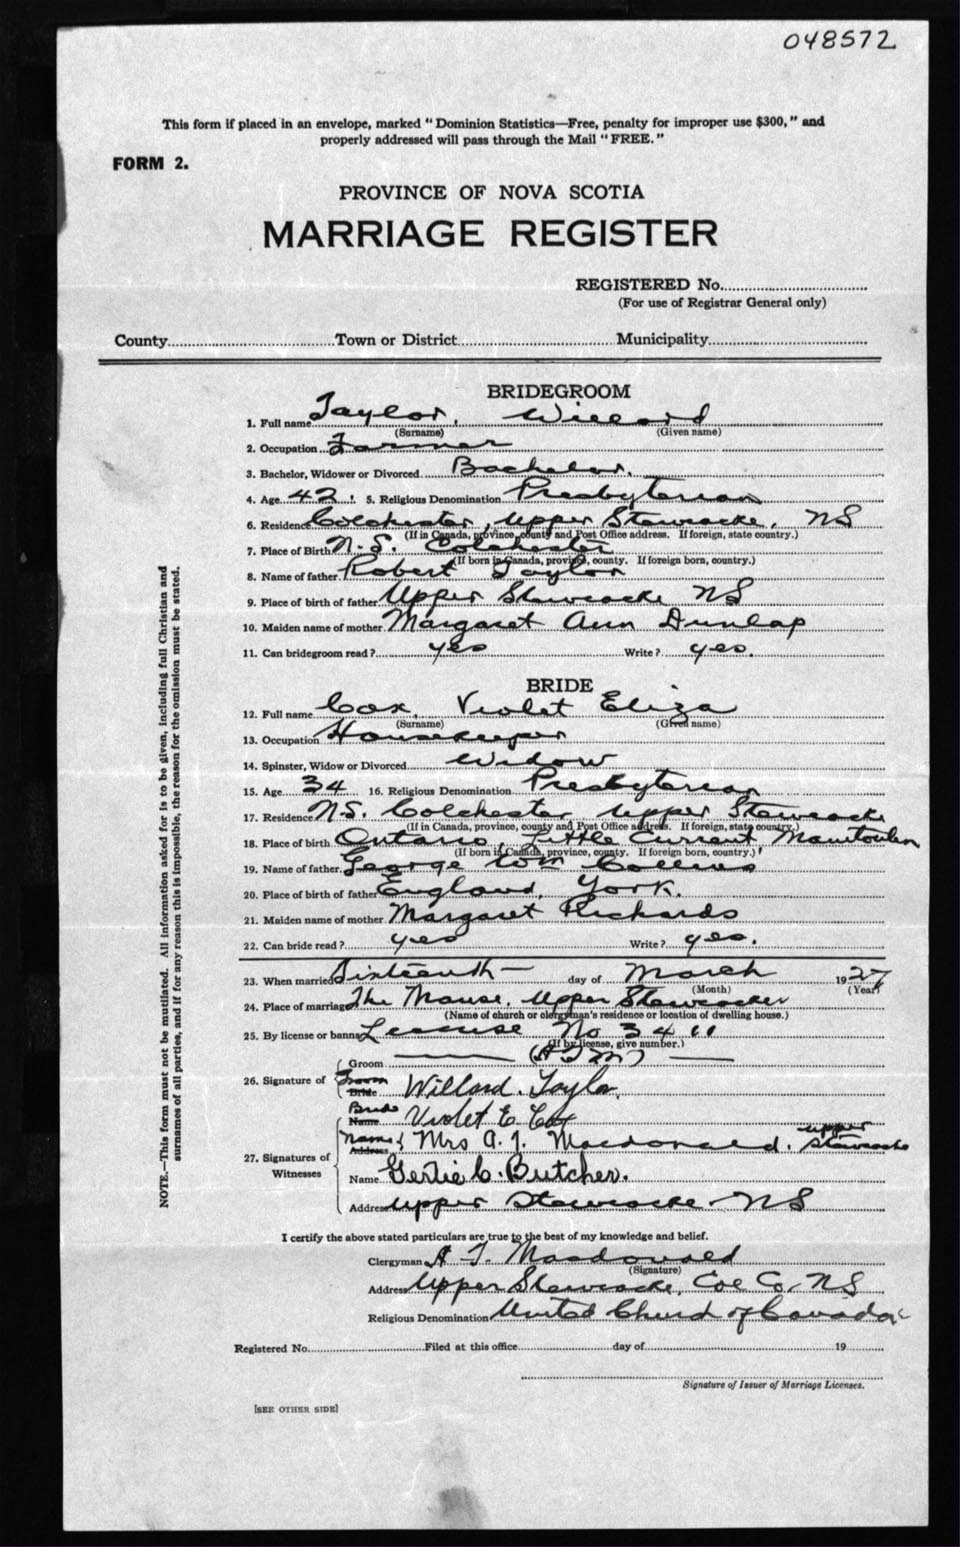 048572
This form if placed in an envelope, marked "Dominion Statistics—Free, penalty for improper use $300," and
properly addressed will pass through the Mail "FREE."
FORM 2.
PROVINCE OF NOVA SCOTIA
MARRIAGE REGISTER
REGISTERED No.
(For use of Registrar General only)
County Town or District Municipality
BRIDEGROOM
1. Full name Taylor, Willard
(Surname) (Given name)
2. Occupation Farmer
3. Bachelor, Widower or Divorced Bachelor.
4. Age 42 5. Religious Denomination Presbyterian
6. Residence Colchester, Upper Stewiacke, NS
(If in Canada, province, county and Post Office address. If foreign, state country.)
7. Place of Birth N.S. Colchester
(If born in Canada, province, county. If foreign born, country.)
8. Name of father Robert Taylor
9. Place of birth of father Upper Stewiacke NS
10. Maiden name of mother Margaret Ann Dunlap
11. Can bridegroom read? yes Write? yes.
BRIDE
12. Full name Cox, Violet Eliza
(Surname) (Given name)
13. Occupation Housekeeper
14. Spinster, Widow or Divorced Widow
15. Age 34 16. Religious Denomination Presbyterian
17. Residence N.S. Colchester, Upper Stewiacke
(If in Canada, province, county and Post Office address. If foreign, state country.)
18. Place of birth Ontario, Little Current Manitoulin
(If born in Canada, province, county. If foreign born, country.)
19. Name of father George Wm Collins
20. Place of birth of father England, York.
21. Maiden name of mother Margaret Richards
22. Can bride read? yes Write? yes.
23. When married Sixteenth — day of March 1927
(Month) (Year)
24. Place of marriage The Manse, Upper Stewiacke
(Name of church or clergyman's residence or location of dwelling house.)
25. By license or banns License No 3411
(If by license, give number.)
Groom (A J M)
26. Signature of Groom Bride Willard Taylor.
Bride Name Violet E Cox
Name Address Mrs A. J. Macdonald, Upper Stewiacke
27. Signatures of Witnesses
Name Gertie C. Butcher.
Address Upper Stewiacke NS
I certify the above stated particulars are true to the best of my knowledge and belief.
Clergyman A J Macdonald
(Signature)
Address Upper Stewiacke, Col Co, NS
Religious Denomination United Church of Canada
Registered No. Filed at this office day of 19
Signature of Issuer of Marriage Licenses.
[SEE OTHER SIDE]
NOTE.—This form must not be mutilated. All information asked for is to be given, including full Christian and
surnames of all parties, and if for any reason this is impossible, the reason for the omission must be stated.